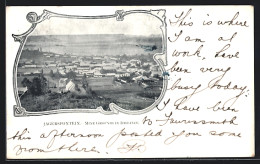 This is where
I am at
work, have
been very
busy today.
I have been
to Fauresmith
this afternoon posted you some
from there.
JAGERSFONTEIN.